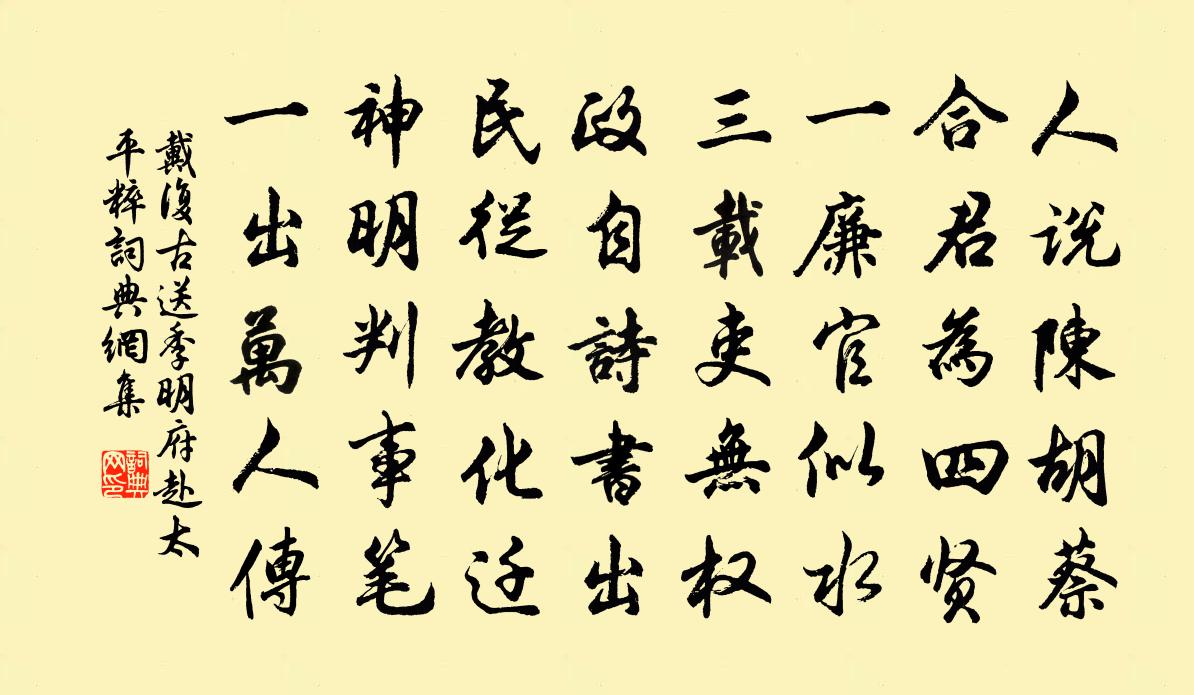 人说陳胡蔡
合君為四贤
一廉官似水
三載吏無权
政自詩書出
民從教化迁
神明判事笔
一出萬人傳
戴復古送季明府赴太
平粹詞典網集
詞典網印